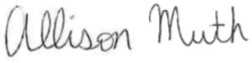 Allison Muth